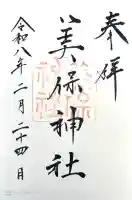 奉拝
美保神社
令和八年二月二十四日